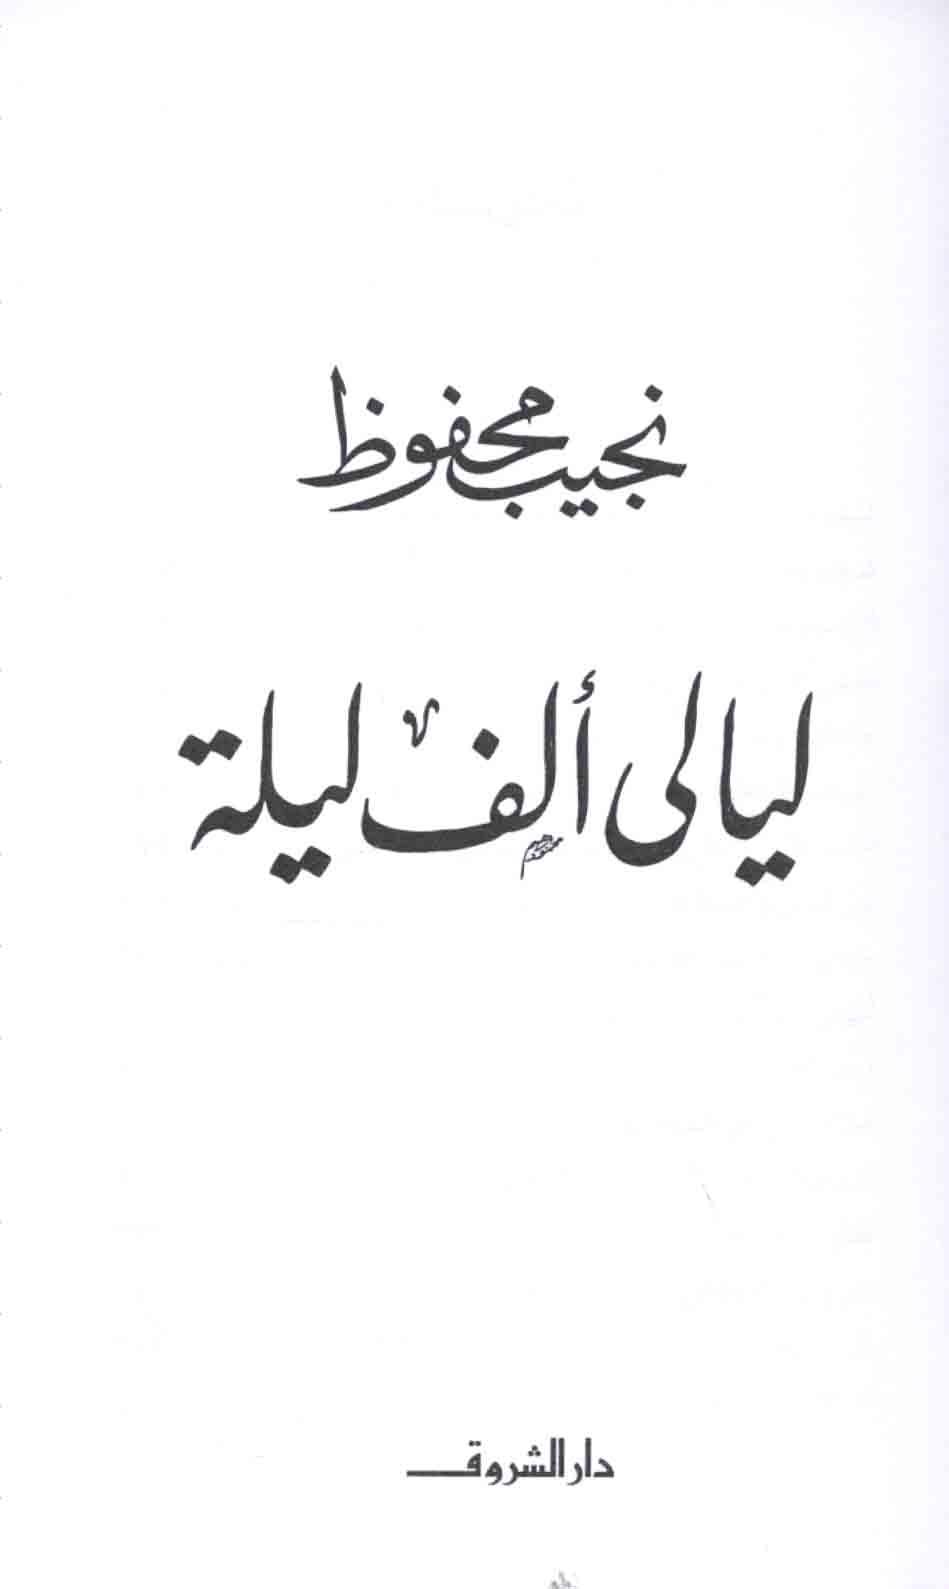 نجيب محفوظ
ليالى ألف ليلة
دار الشروق